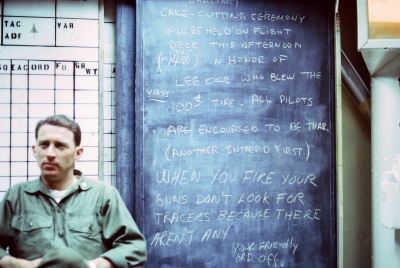 TAC
VAR
ADF
CAKE-CUTTING CEREMONY
WILL BE HELD ON FLIGHT
DECK THIS AFTERNOON
IN HONOR OF
LEE COLE WHO BLEW THE
VAST
100st TIRE. ALL PILOTS
ARE ENCOURAGED TO BE THAR.
(ANOTHER INTREPID FIRST)
WHEN YOU FIRE YOUR
GUNS DON'T LOOK FOR
TRACERS BECAUSE THERE
AREN'T ANY!
YOUR FRIENDLY
ORD. OFF.